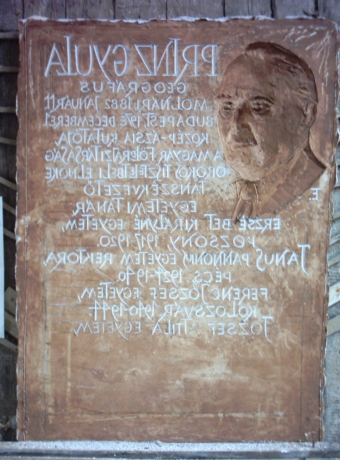 PRINZ GYULA
GEOGRÁFUS
MOLNÁRI, 1882. JANUÁR 11.
BUDAPEST 1973. DECEMBER
KÖZÉP-ÁZSIA KUTATÓJA
A MAGYAR FÖLDRAJZI TÁRSASÁG
ÖRÖKÖS TISZTELETBELI ELNÖKE
TANSZÉKVEZETŐ
EGYETEMI TANÁR
ERZSÉBET KIRÁLYNÉ EGYETEM,
POZSONY 1917-1920.
JANUS PANNONIUS EGYETEM REKTORA
PÉCS 1927-1940
FERENC JÓZSEF EGYETEM,
KOLOZSVÁR 1940-1944
JÓZSEF ATTILA EGYETEM,